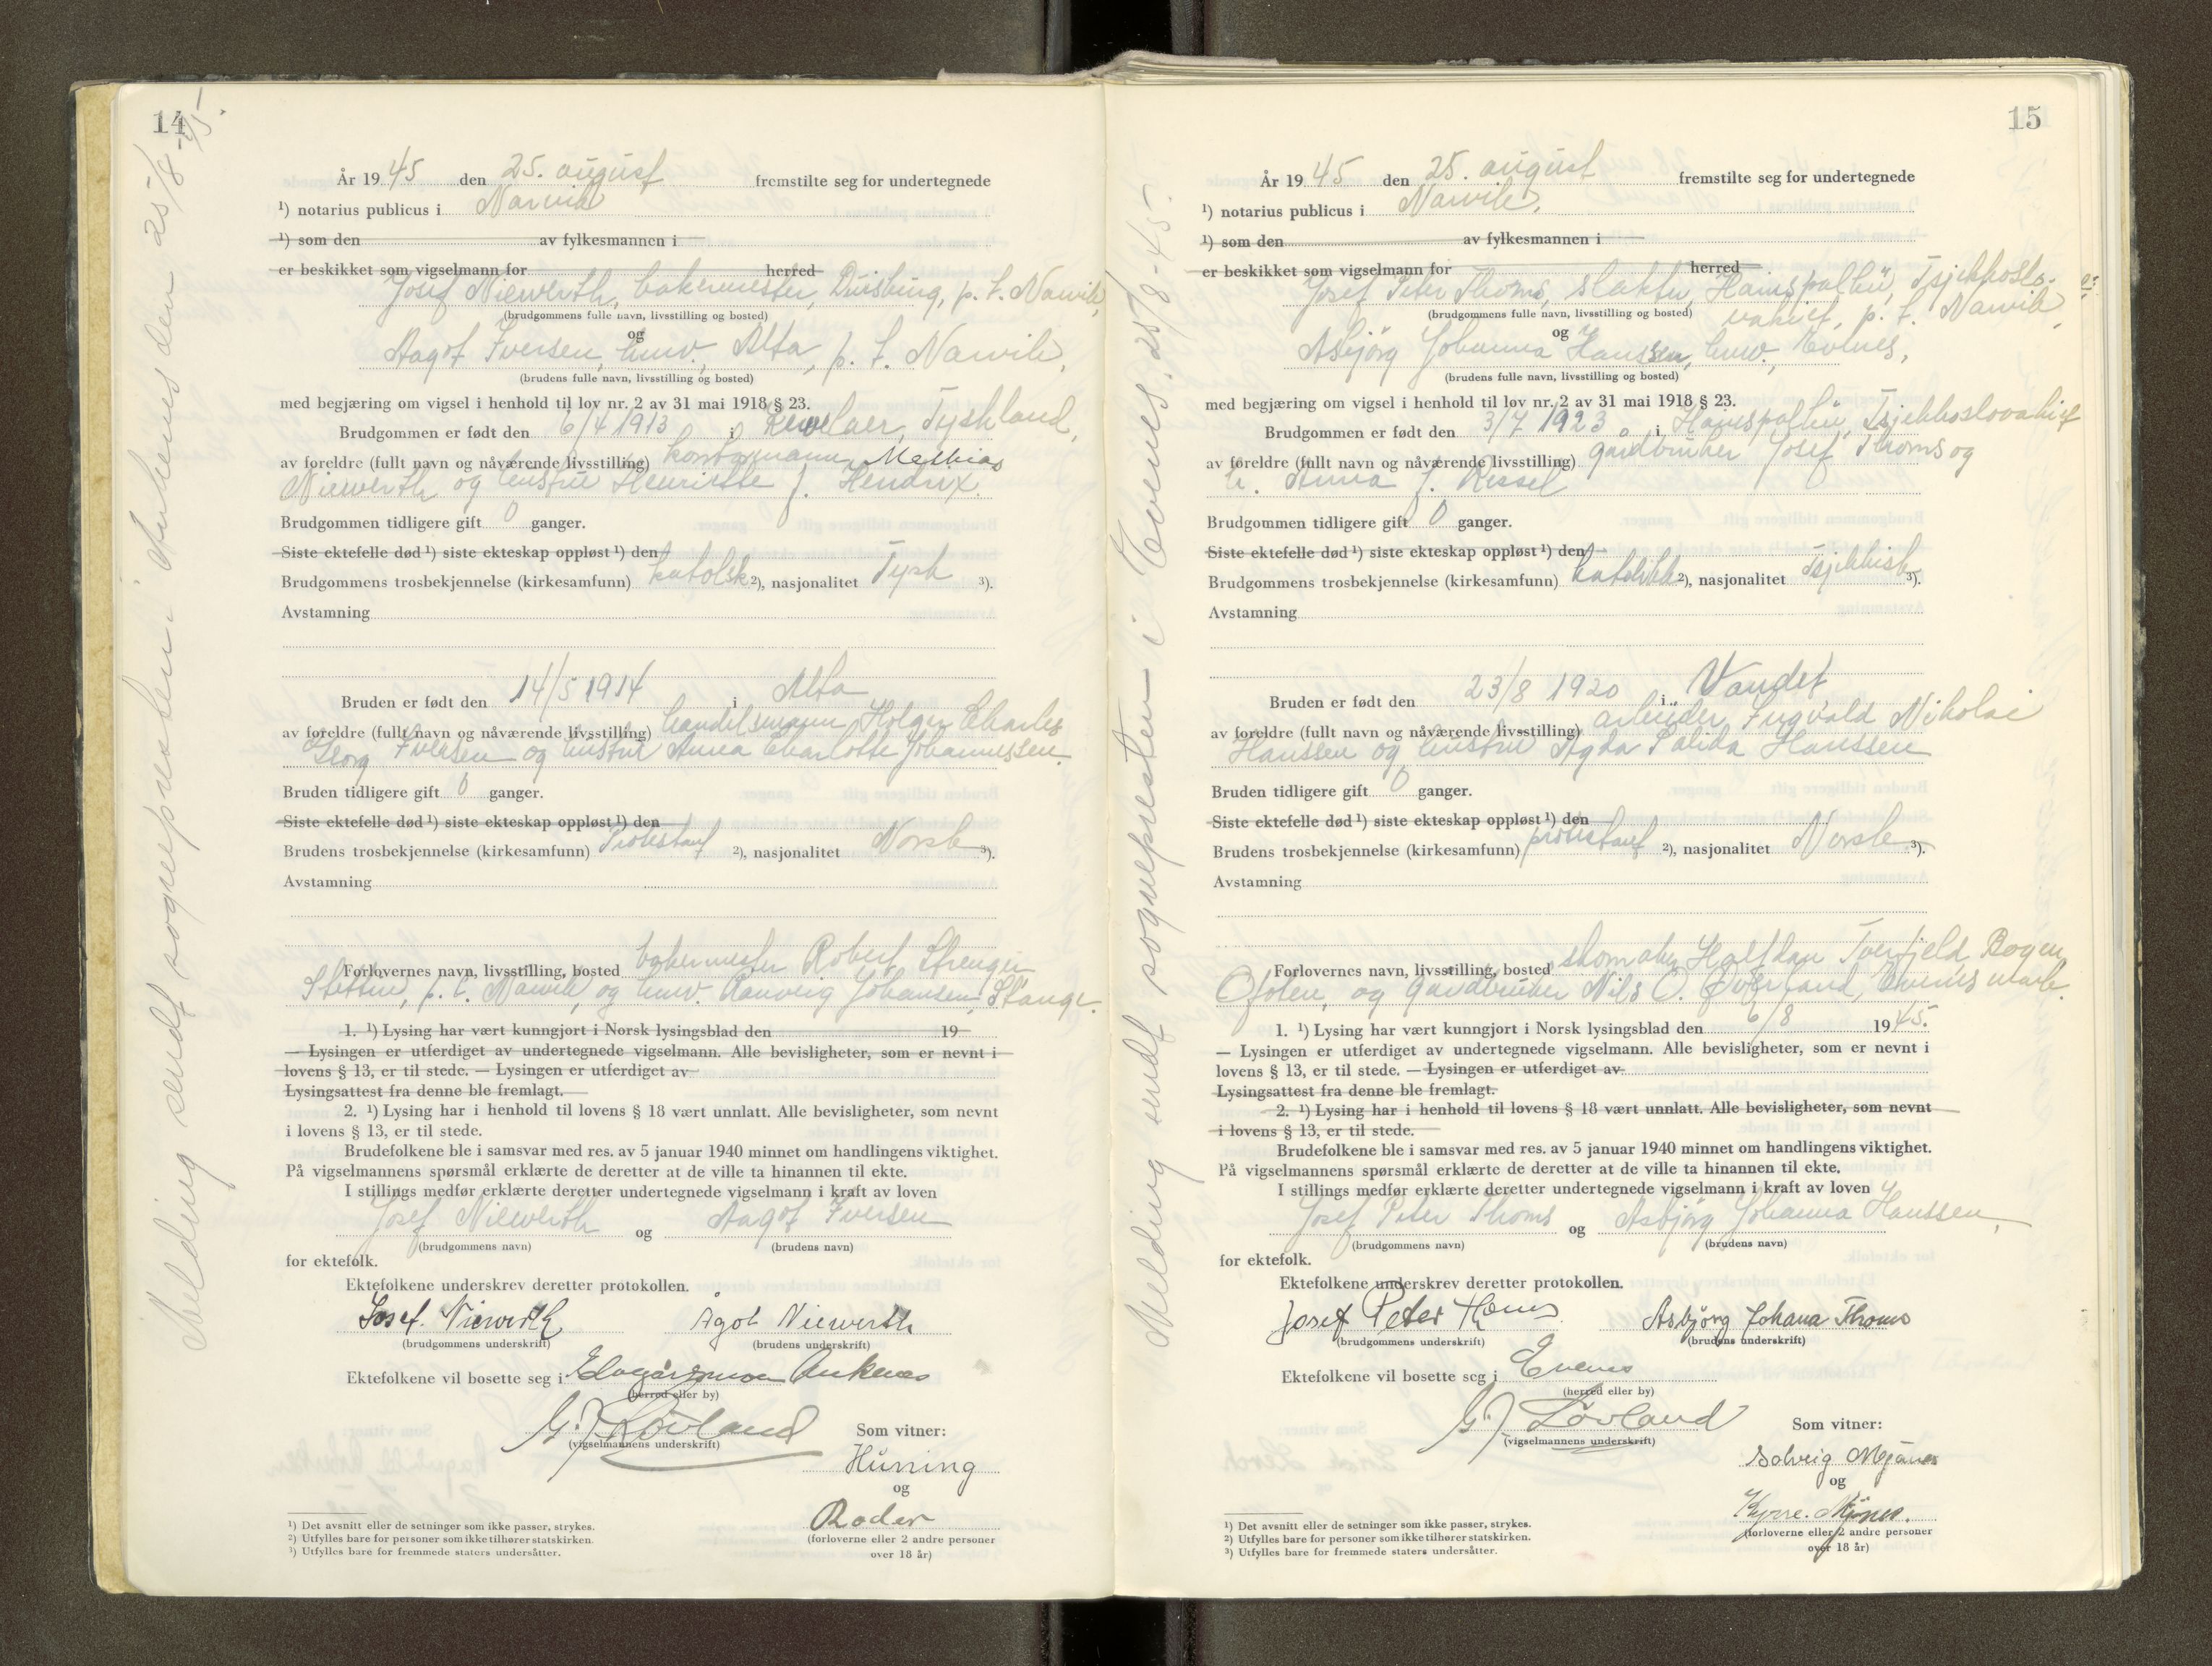 14
Melding sendt sognepresten i Ankenes den 25/8-45.
År 1945 den 25. august fremstilte seg for undertegnede
¹) notarius publicus i Narvik
¹) som den av fylkesmannen i
er beskikket som vigselmann for herred
Josef Niewerth, bakermester, Duisburg, p. t. Narvik,
(brudgommens fulle navn, livsstilling og bosted)
og
Aagot Iversen, husv. Alta, p. t. Narvik,
(brudens fulle navn, livsstilling og bosted)
med begjæring om vigsel i henhold til lov nr. 2 av 31 mai 1918 § 23.
Brudgommen er født den 6/4 1913 i Kevelaer, Tyskland,
av foreldre (fullt navn og nåværende livsstilling) kontormann Mathias
Niewerth og hustru Henriette f. Hendrix.
Brudgommen tidligere gift 0 ganger.
Siste ektefelle død ¹) siste ekteskap oppløst ¹) den
Brudgommens trosbekjennelse (kirkesamfunn) katolsk ²), nasjonalitet Tysk ³).
Avstamning
Bruden er født den 14/5 1914 i Alta
av foreldre (fullt navn og nåværende livsstilling) handelsmann Holger Charles
Georg Iversen og hustru Anna Charlotte Johannessen.
Bruden tidligere gift 0 ganger.
Siste ektefelle død ¹) siste ekteskap oppløst ¹) den
Brudens trosbekjennelse (kirkesamfunn) Protestant ²), nasjonalitet Norsk ³).
Avstamning
Forlovernes navn, livsstilling, bosted bakermester Robert Strenger
Stettin, p. t. Narvik og husv. Rannveig Johansen, Stange.
1. ¹) Lysing har vært kunngjort i Norsk lysingsblad den 19
— Lysingen er utferdiget av undertegnede vigselmann. Alle bevisligheter, som er nevnt i
lovens § 13, er til stede. — Lysingen er utferdiget av
Lysingsattest fra denne ble fremlagt.
2. ¹) Lysing har i henhold til lovens § 18 vært unnlatt. Alle bevisligheter, som nevnt
i lovens § 13, er til stede.
Brudefolkene ble i samsvar med res. av 5 januar 1940 minnet om handlingens viktighet.
På vigselmannens spørsmål erklærte de deretter at de ville ta hinannen til ekte.
I stillings medfør erklærte deretter undertegnede vigselmann i kraft av loven
Josef Niewerth og Aagot Iversen
(brudgommens navn) (brudens navn)
for ektefolk.
Ektefolkene underskrev deretter protokollen.
Josef. Niewerth Ågot Niewerth
(brudgommens underskrift) (brudens underskrift)
Ektefolkene vil bosette seg i Ankenes
(herred eller by)
G. J. Løvland
(vigselmannens underskrift)
Som vitner:
Hüning
og
Roder
(forloverne eller 2 andre personer
over 18 år)
¹) Det avsnitt eller de setninger som ikke passer, strykes.
²) Utfylles bare for personer som ikke tilhører statskirken.
³) Utfylles bare for fremmede staters undersåtter.
15
Melding sendt sognepresten i Evenes 25/8-45.
År 1945 den 25. august fremstilte seg for undertegnede
¹) notarius publicus i Narvik,
¹) som den av fylkesmannen i
er beskikket som vigselmann for herred
Josef Peter Thoms, slakter, Hainspolhü, Tsjekkoslo-
(brudgommens fulle navn, livsstilling og bosted) vakiet, p. t. Narvik,
og
Asbjørg Johanna Hanssen, husv., Evenes,
(brudens fulle navn, livsstilling og bosted)
med begjæring om vigsel i henhold til lov nr. 2 av 31 mai 1918 § 23.
Brudgommen er født den 3/7 1923 i Hainspolhü, Tsjekkoslovakiet
av foreldre (fullt navn og nåværende livsstilling) gårdbruker Josef Thoms og
h. Anna f. Ressel
Brudgommen tidligere gift 0 ganger.
Siste ektefelle død ¹) siste ekteskap oppløst ¹) den
Brudgommens trosbekjennelse (kirkesamfunn) katolikk ²), nasjonalitet Tsjekkisk ³).
Avstamning
Bruden er født den 23/8 1920 i Vandet
av foreldre (fullt navn og nåværende livsstilling) arbeider Ingvald Nikolai
Hanssen og hustru Agda Palida Hanssen
Bruden tidligere gift 0 ganger.
Siste ektefelle død ¹) siste ekteskap oppløst ¹) den
Brudens trosbekjennelse (kirkesamfunn) protestant ²), nasjonalitet Norsk ³).
Avstamning
Forlovernes navn, livsstilling, bosted skomaker Halfdan Tverfjeld, Bogen
Ofoten, og gårdbruker Nils O. Øverland, Evenesmark.
1. ¹) Lysing har vært kunngjort i Norsk lysingsblad den 6/8 1945.
— Lysingen er utferdiget av undertegnede vigselmann. Alle bevisligheter, som er nevnt i
lovens § 13, er til stede. — Lysingen er utferdiget av
Lysingsattest fra denne ble fremlagt.
2. ¹) Lysing har i henhold til lovens § 18 vært unnlatt. Alle bevisligheter, som nevnt
i lovens § 13, er til stede.
Brudefolkene ble i samsvar med res. av 5 januar 1940 minnet om handlingens viktighet.
På vigselmannens spørsmål erklærte de deretter at de ville ta hinannen til ekte.
I stillings medfør erklærte deretter undertegnede vigselmann i kraft av loven
Josef Peter Thoms og Asbjørg Johanna Hanssen,
(brudgommens navn) (brudens navn)
for ektefolk.
Ektefolkene underskrev deretter protokollen.
Josef Peter Thoms Asbjørg Johana Thoms
(brudgommens underskrift) (brudens underskrift)
Ektefolkene vil bosette seg i Evenes
(herred eller by)
G. J. Løvland
(vigselmannens underskrift)
Som vitner:
Solveig Mejånes
og
Kyrre
(forloverne eller 2 andre personer
over 18 år)
¹) Det avsnitt eller de setninger som ikke passer, strykes.
²) Utfylles bare for personer som ikke tilhører statskirken.
³) Utfylles bare for fremmede staters undersåtter.